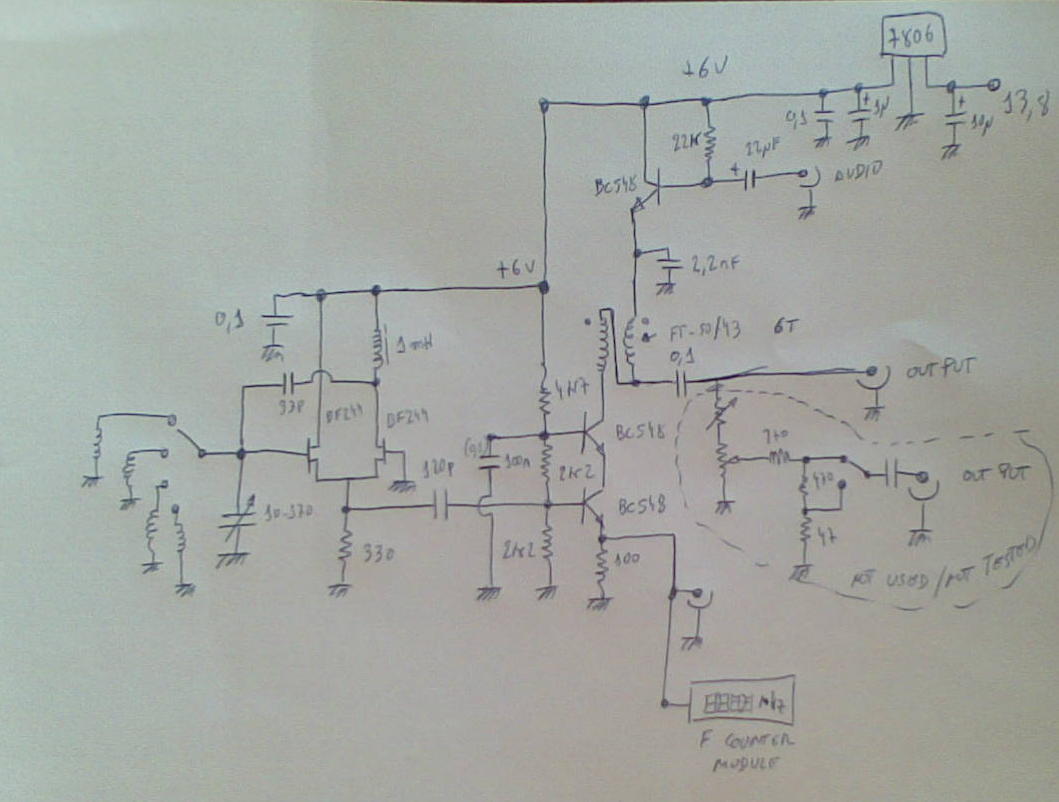 7806
+6V
13,8
0,1
1µ
10µ
22K
22µF
BC548
AUDIO
+6V
2,2nF
0,1
1mH
FT-50/43 6T
0,1
OUTPUT
4K7
BF244
BF244
BC548
100n
120p
2K2
470
OUTPUT
10-370
BC548
330
2K2
100
47
NOT USED/NOT TESTED
MHz
F COUNTER
MODULE